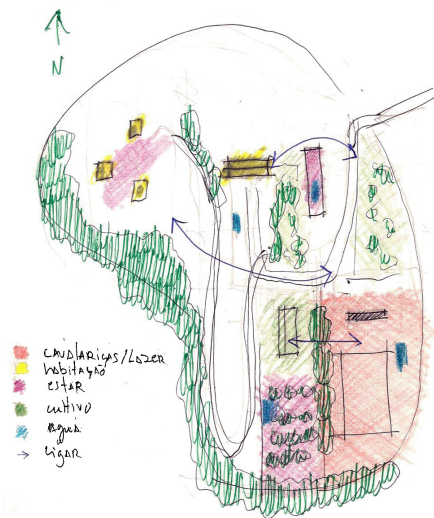 N
CAVALARIÇAS/LAZER
HABITAÇÃO
ESTAR
CULTIVO
ÁGUA
LIGAR